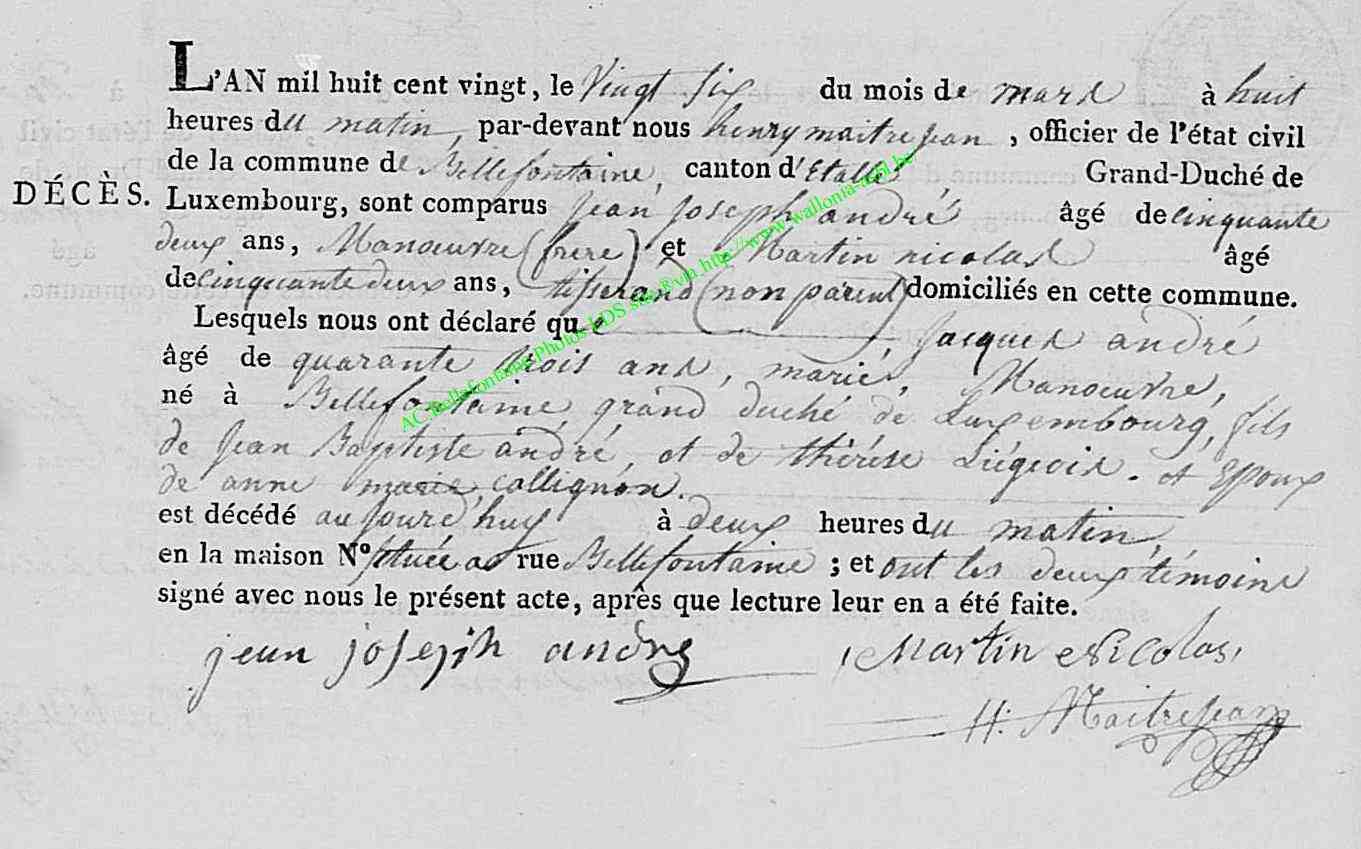 L'AN mil huit cent vingt, le Vingt six du mois de mars à huit
heures du matin, par-devant nous henry maitrejean, officier de l'état civil
de la commune de Bellefontaine, canton d'Etalle Grand-Duché de
DÉCÈS. Luxembourg, sont comparus Jean Joseph andré âgé de cinquante
deux ans, Manoeuvre (frere) et Martin nicolas âgé
de cinquante deux ans, tisserand (non parent) domiciliés en cette commune.
Lesquels nous ont déclaré que Jacques andré
âgé de quarante trois ans, marié, Manoeuvre,
né à Bellefontaine, grand duché de Luxembourg, fils
de Jean Baptiste andré, et de thérése Liégeois. et Epoux
de anne marie collignon.
est décédé aujourd'huy à deux heures du matin,
en la maison N° située a rue Bellefontaine ; et ont les deux témoins
signé avec nous le présent acte, après que lecture leur en a été faite.
jean joseph andre Martin Nicolas
H. Maitrejean
AC Bellefontaine Photos LDS site via http://www.wallonia-asbl.be